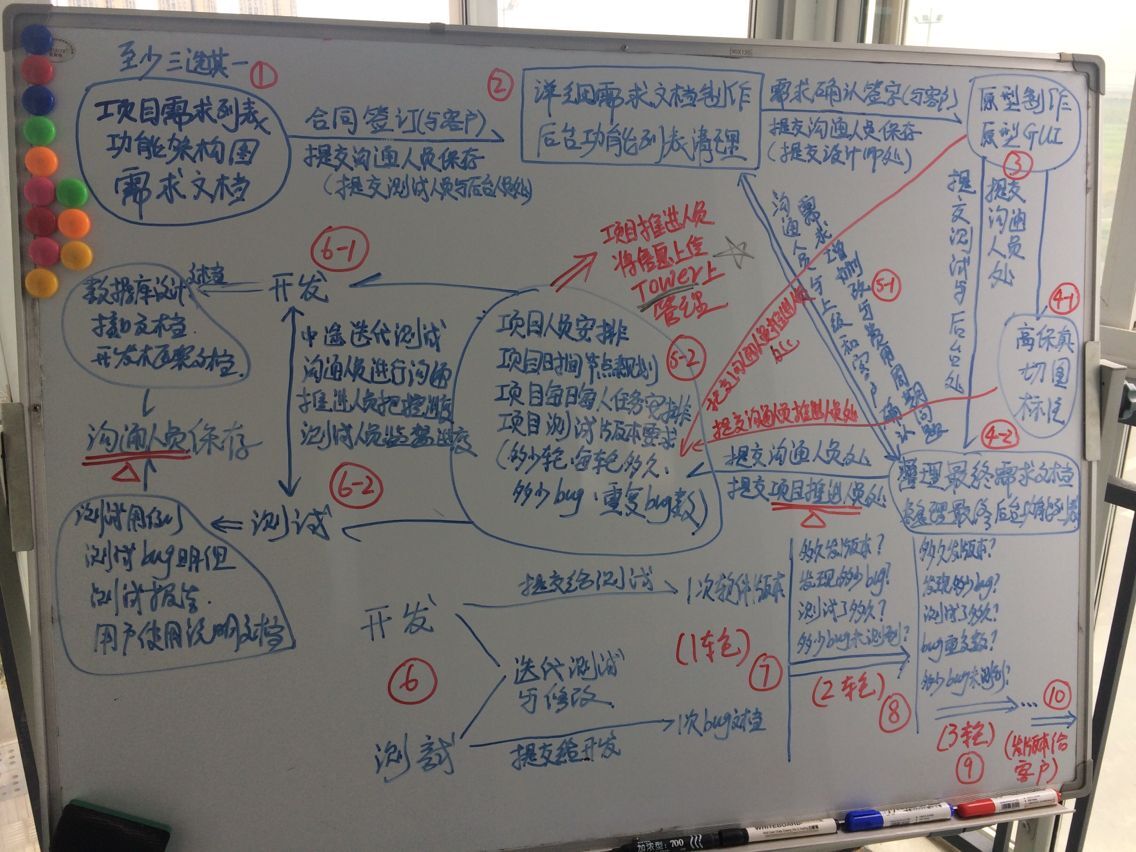 至少三选其一
①
项目需求列表
功能架构图
需求文档
合同签订(与客户)
提交沟通人员保存
(提交测试人员与后台处)
②
详细需求文档制作
后台功能列表清理
需求确认签字(与客户)
提交沟通人员保存
(提交设计师处)
原型制作
原型GUI
③
提交测试与后台处
提交沟通人员处
4-1
高保真
切图
标注
需求增删改与费用周期问题
沟通人员与上级和客户确认
5-1
项目推进人员
将信息上传
Tower上
管理
提交沟通人员推进人员处
提交沟通人员处
提交项目推进人员处
4-2
整理最终需求文档
整理最终后台功能列表
5-2
项目人员安排
项目时间节点规划
项目每日每人任务安排
项目测试版本要求
(多少轮、每轮多久、
多少bug、重复bug数)
6-1
开发
数据库设计
接口文档
开发框架文档
沟通人员保存
中途迭代测试
沟通人员进行沟通
推进人员把控进度
测试人员监督进度
6-2
测试
测试用例
测试bug明细
测试报告
用户使用说明文档
开发
提交给测试
1次软件版本
⑥
迭代测试
与修改
(1轮)
⑦
测试
提交给开发
1次bug文档
多久发版本?
发现多少bug?
测试了多久?
多少bug未测到?
(2轮)
⑧
多久发版本?
发现多少bug?
测试了多久?
bug重复数?
多少bug未测到?
(3轮)
⑨
...
⑩
(发版本给
客户)
WHITEBOARD
700